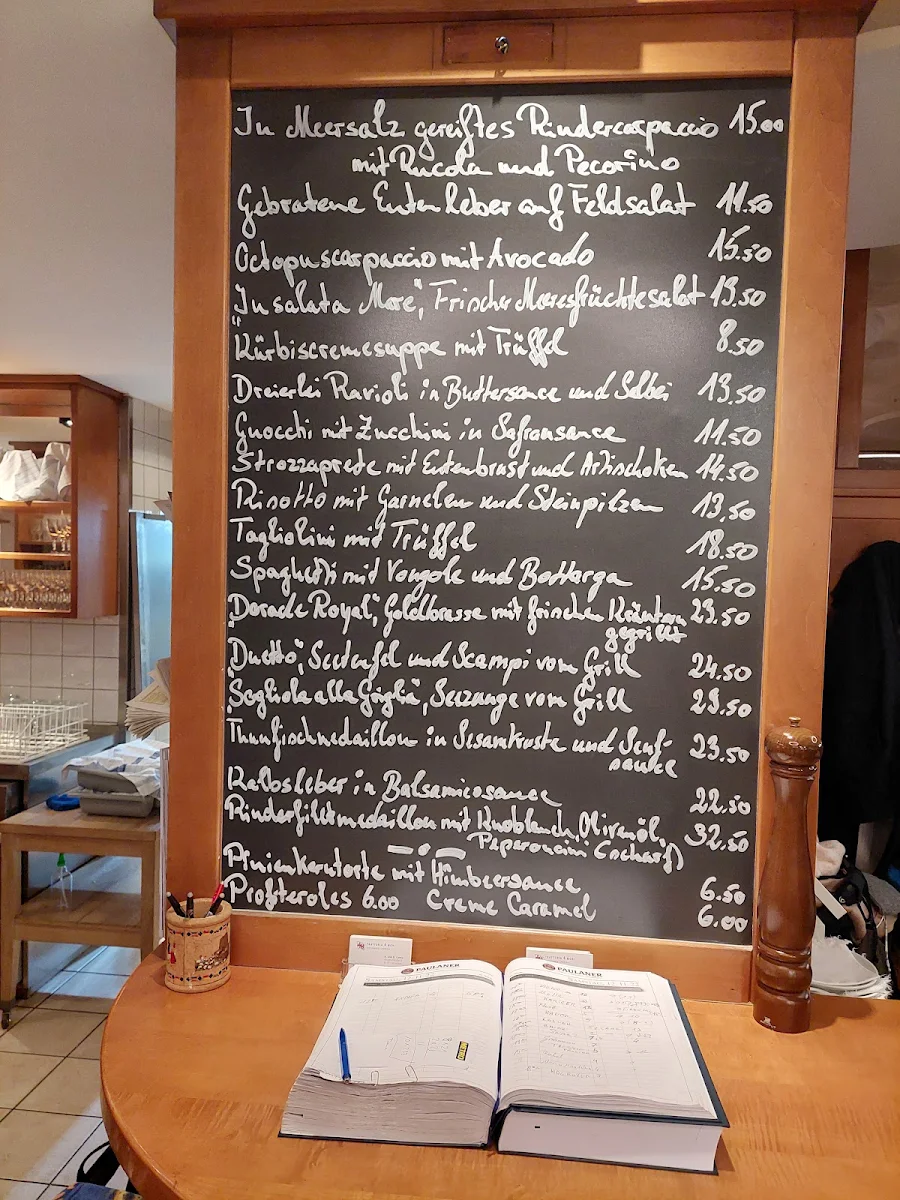 In Meersalz gereiftes Rindercarpaccio 15.00
mit Rucola und Pecorino
Gebratene Entenleber auf Feldsalat 11.50
Octopuscarpaccio mit Avocado 15.50
"Insalata Mare", Frischer Meeresfrüchtesalat 13.50
Kürbiscremesuppe mit Trüffel 8.50
Dreierlei Ravioli in Buttersauce und Salbei 13.50
Gnocchi mit Zucchini in Safransauce 11.50
Strozzaprete mit Entenbrust und Artischoken 14.50
Risotto mit Garnelen und Steinpilzen 13.50
Tagliolini mit Trüffel 18.50
Spaghetti mit Vongole und Bottarga 15.50
"Dorade Royal", Goldbrasse mit frischen Kräutern 23.50
gegrillt
"Duetto", Seeteufel und Scampi vom Grill 24.50
"Sogliola alla Griglia", Seezunge vom Grill 29.50
Thunfischmedaillon in Sesamkruste und Senf- 23.50
sauce
Kalbsleber in Balsamicosauce 22.50
Rinderfiletmedaillon mit Knoblauch, Olivenöl, 32.50
Peperoncini (scharf)
Pinienkerntorte mit Himbeersauce 6.50
Profiteroles 6.00 Creme Caramel 6.00
PAULANER
PAULANER